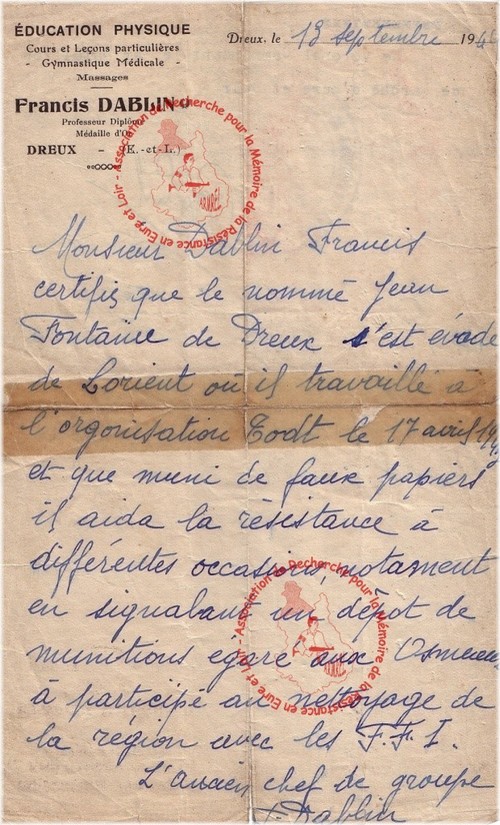 ÉDUCATION PHYSIQUE
Cours et Leçons particulières
- Gymnastique Médicale -
Massages
Francis DABLIN
Professeur Diplômé
Médaille d'Or
DREUX - (E.-et-L.)
Dreux, le 13 septembre 194
Association de Recherche pour la Mémoire de la Résistance en Eure et Loir -
Monsieur Dablin Francis
certifis que le nommé Jean
Fontaine de Dreux s'est évadé
de Lorient où il travaillé à
l'orgonisation Todt le 17 avril 19
et que muni de faux papiers
il aida la résistance à
différentes occasions, notament
en signalant un dépot de
munitions égaré aux
à participé au nettoyage de
la région avec les F.F.I.
L'ancien chef de groupe
Dablin
Association de Recherche pour la Mémoire de la Résistance en Eure et Loir -